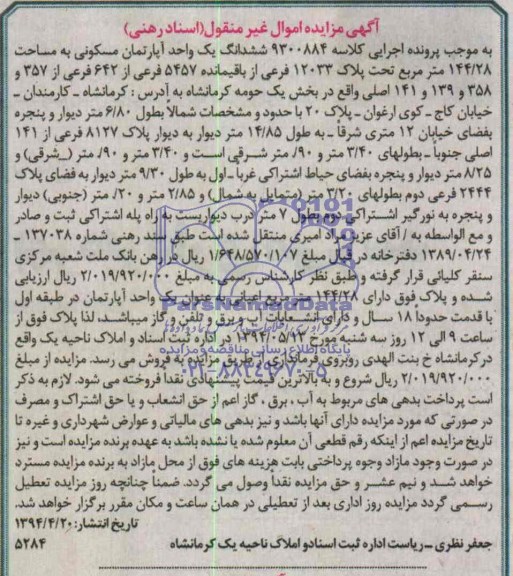 آگهی مزایده اموال غیر منقول(اسناد رهنی)
به موجب پرونده اجرایی کلاسه ۹۳۰۰۸۸۴ ششدانگ یک واحد آپارتمان مسکونی به مساحت
۱۴۴/۲۸ متر مربع تحت پلاک ۱۲۰۳۳ فرعی از باقیمانده ۵۴۵۷ فرعی از ۶۴۲ فرعی از ۳۵۷ و
۳۵۸ و ۱۳۹ و ۱۴۱ اصلی واقع در بخش یک حومه کرمانشاه به آدرس : کرمانشاه ـ کارمندان ـ
خیابان کاج ـ کوی ارغوان ـ پلاک ۲۰ با حدود و مشخصات شمالاً بطول ۶/۸۰ متر دیوار و پنجره
بفضای خیابان ۱۲ متری شرقاً ـ به طول ۱۴/۸۵ متر دیوار به دیوار پلاک ۸۱۲۷ فرعی از ۱۴۱
اصلی جنوباً ـ بطولهای ۳/۴۰ متر و ۹۰/ متر شـرقی اسـت و ۳/۴۰ متر و ۹۰/ متر (_شرقی) و
۸/۲۵ متر دیوار و پنجره بفضای حیاط اشتراکی غربا ـ اول به طول ۹/۳۰ متر دیوار به فضای پلاک
۲۴۴۴ فرعی دوم بطولهای ۳/۲۰ متر (متمایل به شمال) و ۲/۸۵ متر و ۲۰/ متر (جنوبی) دیوار
و پنجره به نورگیر اشـتراکی دوم بطول ۷ متر درب دیواریست به راه پله اشتراکی ثبت و صادر
و مع الواسطه به / آقای عزیز مراد امیری منتقل شده است طبق سند رهنی شماره ۱۳۷۰۳۸ ـ
۱۳۸۹/۰۴/۲۴ دفترخانه در قبال مبلغ ۱/۶۴۸/۵۷۰/۱۰۷ ریال در رهن بانک ملت شعبه مرکزی
سنقر کلیائی قرار گرفته و طبق نظر کارشناس رسمی به مبلغ ۲/۰۱۹/۹۲۰/۰۰۰ ریال ارزیابی
شده و پلاک فوق دارای ۱۴۴/۲۸ متر مربع اعیانی به عنوان یک واحد آپارتمان در طبقه اول
با قدمت حدوداً ۱۸ سـال و دارای انشـعابات آب و برق و تلفن و گاز میباشـد، لذا پلاک فوق از
ساعت ۹ الی ۱۲ روز سه شنبه مورخ ۱۳۹۴/۰۵/۱۳ در اداره ثبت اسناد و املاک ناحیه یک واقع
در کرمانشاه خ بنت الهدی روبروی فرمانداری از طریق مزایده به فروش می رسد. مزایده از مبلغ
۲/۰۱۹/۹۲۰/۰۰۰ ریال شروع و به بالاترین قیمت پیشنهادی نقداً فروخته می شود. لازم به ذکر
است پرداخت بدهی های مربوط به آب ، برق ، گاز اعم از حق انشعاب و یا حق اشتراک و مصرف
در صورتی که مورد مزایده دارای آنها باشد و نیز بدهی های مالیاتی و عوارض شهرداری و غیره تا
تاریخ مزایده اعم از اینکه رقم قطعی آن معلوم شده یا نشده باشد به عهده برنده مزایده است و نیز
در صورت وجود مازاد وجوه پرداختی بابت هزینه های فوق از محل مازاد به برنده مزایده مسترد
خواهد شـد و نیم عشـر و حق مزایده نقداً وصول می گردد. ضمناً چنانچه روز مزایده تعطیل
رسـمی گردد مزایده روز اداری بعد از تعطیلی در همان ساعت و مکان مقرر برگزار خواهد شد.
تاریخ انتشار: ۱۳۹۴/۴/۲۰
جعفر نظری ـ ریاست اداره ثبت اسناد و املاک ناحیه یک کرمانشاه ۵۲۸۴
ParsNamadData
پایگاه اطلاع رسانی مناقصه و مزایده
۰۲۱-۸۸۳۴۹۶۷۰-۵